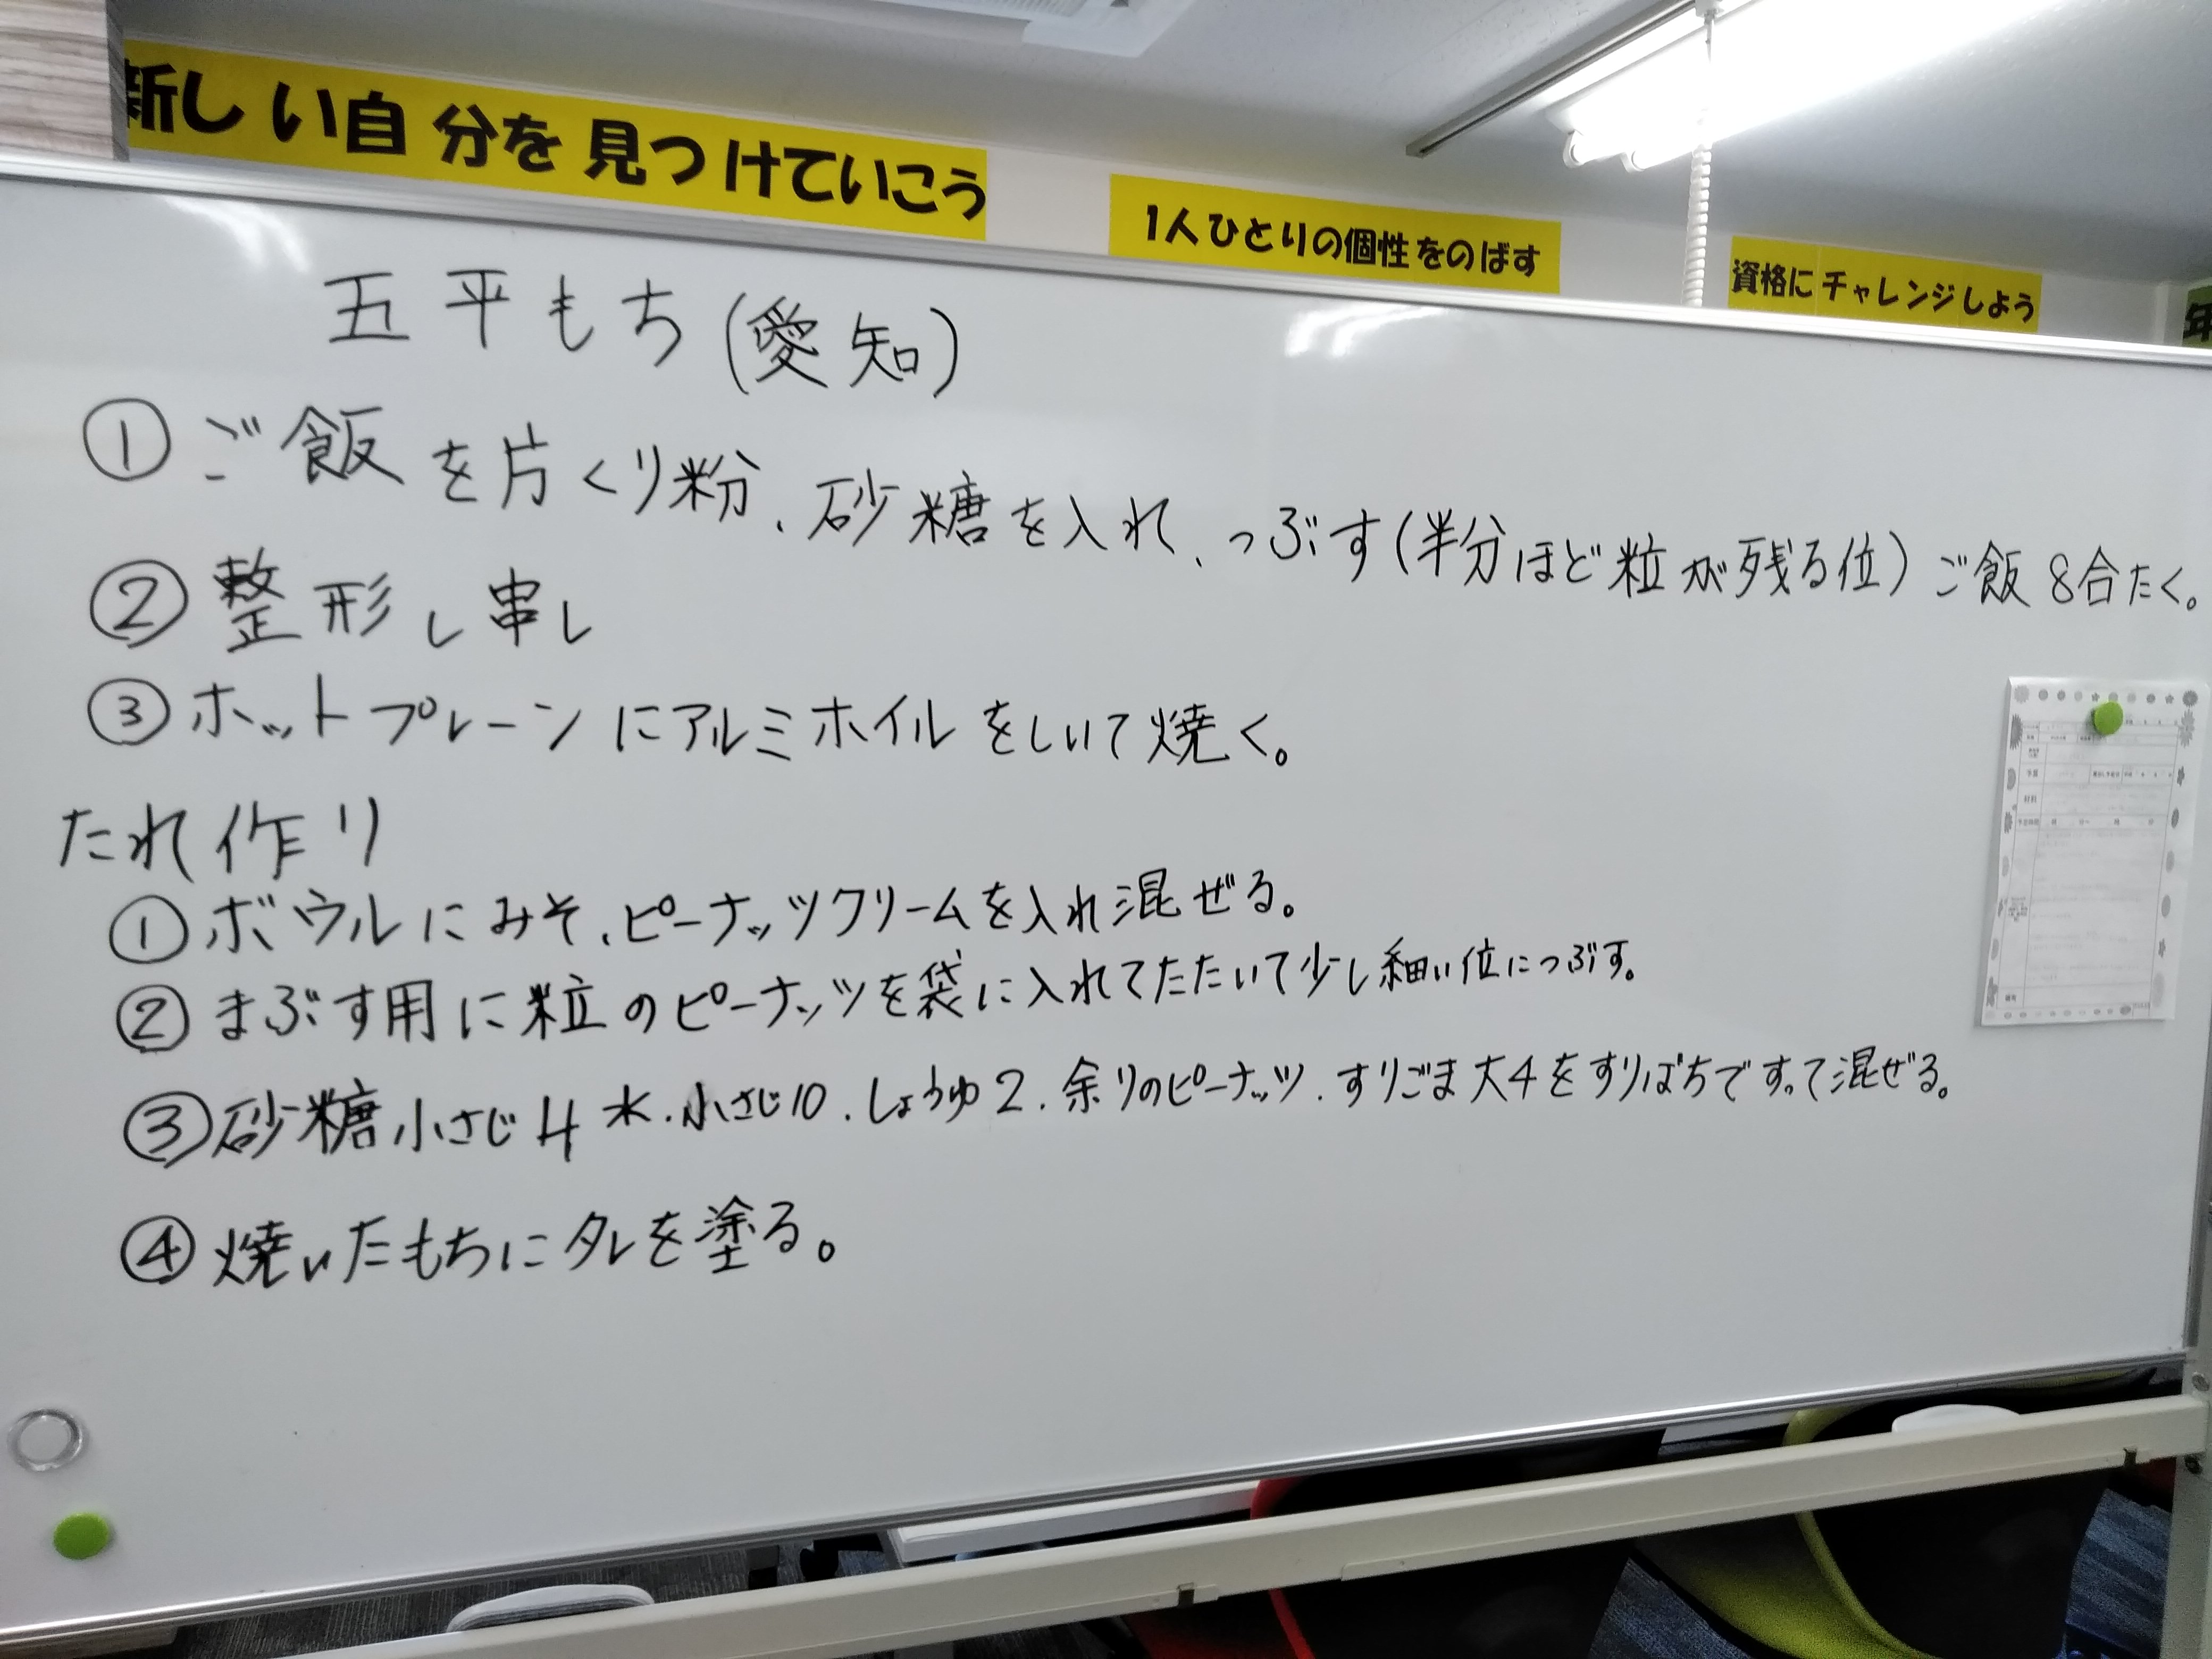 新しい自分を見つけていこう
1人ひとりの個性をのばす
資格にチャレンジしよう
五平もち(愛知)
① ご飯を片くり粉、砂糖を入れ、つぶす(半分ほど粒が残る位) ご飯8合たく。
② 整形し串し
③ ホットプレーンにアルミホイルをしいて焼く。
たれ作り
① ボウルにみそ、ピーナッツクリームを入れ混ぜる。
② まぶす用に粒のピーナッツを袋に入れてたたいて少し細い位につぶす。
③ 砂糖小さじ4 水.小さじ10.しょうゆ2.余りのピーナッツ.すりごま大4をすりばちですって混ぜる。
④ 焼いたもちにタレを塗る。